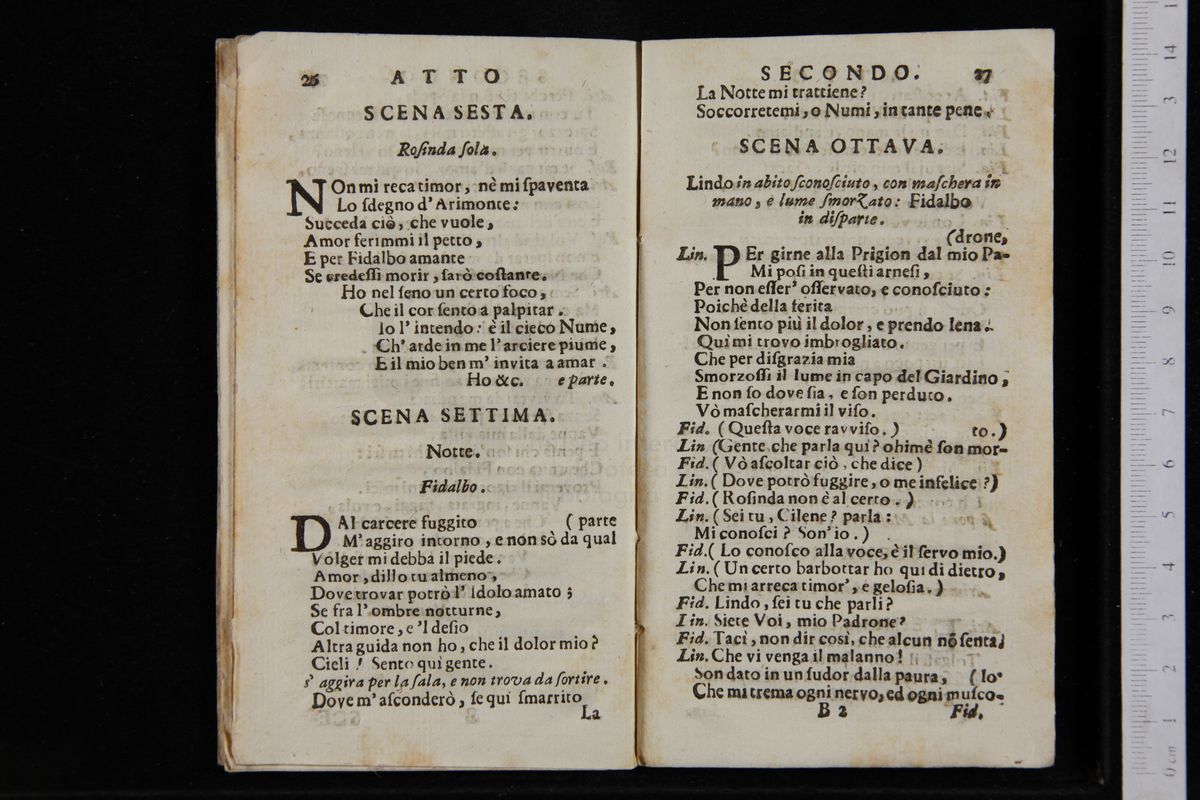 26 ATTO
SCENA SESTA.
Roſinda ſola.
NOn mi reca timor, nè mi ſpaventa
Lo ſdegno d'Arimonte:
Succeda ciò, che vuole,
Amor ferimmi il petto,
E per Fidalbo amante
Se credeſſi morir, ſarò coſtante.
Ho nel ſeno un certo foco,
Che il cor ſento a palpitar.
Io l'intendo: è il cieco Nume,
Ch'arde in me l'arciere piume,
E il mio ben m'invita a amar.
Ho &c. e parte.
SCENA SETTIMA.
Notte.
Fidalbo.
DAl carcere fuggito (parte
M'aggiro intorno, e non sò da qual
Volger mi debba il piede.
Amor, dillo tu almeno,
Dove trovar potrò l'Idolo amato;
Se fra l'ombre notturne,
Col timore, e 'l deſio
Altra guida non ho, che il dolor mio?
Cieli! Sento qui gente.
s'aggira per la ſala, e non trova da ſortire.
Dove m'aſconderò, ſe qui ſmarrito
La
SECONDO. 27
La Notte mi trattiene?
Soccorretemi, o Numi, in tante pene.
SCENA OTTAVA.
Lindo in abito ſconoſciuto, con maſchera in
mano, e lume ſmorzato: Fidalbo
in diſparte.
(drone,
Lin. PEr girne alla Prigion dal mio Pa-
Mi poſi in queſti arneſi,
Per non eſſer' oſſervato, e conoſciuto:
Poichè della ferita
Non ſento più il dolor, e prendo lena.
Qui mi trovo imbrogliato.
Che per diſgrazia mia
Smorzoſſi il lume in capo del Giardino,
E non ſo dove ſia, e ſon perduto.
Vò maſcherarmi il viſo.
Fid. (Queſta voce ravviſo.) to.)
Lin (Gente che parla quì? ohimè ſon mor-
Fid. (Vò aſcoltar ciò, che dice)
Lin. (Dove potrò fuggire, o me infelice?)
Fid. (Roſinda non è al certo.)
Lin. (Sei tu, Cilene? parla:
Mi conoſci? Son'io.)
Fid. (Lo conoſco alla voce, è il ſervo mio.)
Lin. (Un certo barbottar ho qui di dietro,
Che mi arreca timor', e geloſia.)
Fid. Lindo, ſei tu che parli?
Lin. Siete Voi, mio Padrone?
Fid. Taci, non dir così, che alcun nō ſenta.
Lin. Che vi venga il malanno!
Son dato in un ſudor dalla paura, (lo.
Che mi trema ogni nervo, ed ogni muſco-
B 2 Fid.